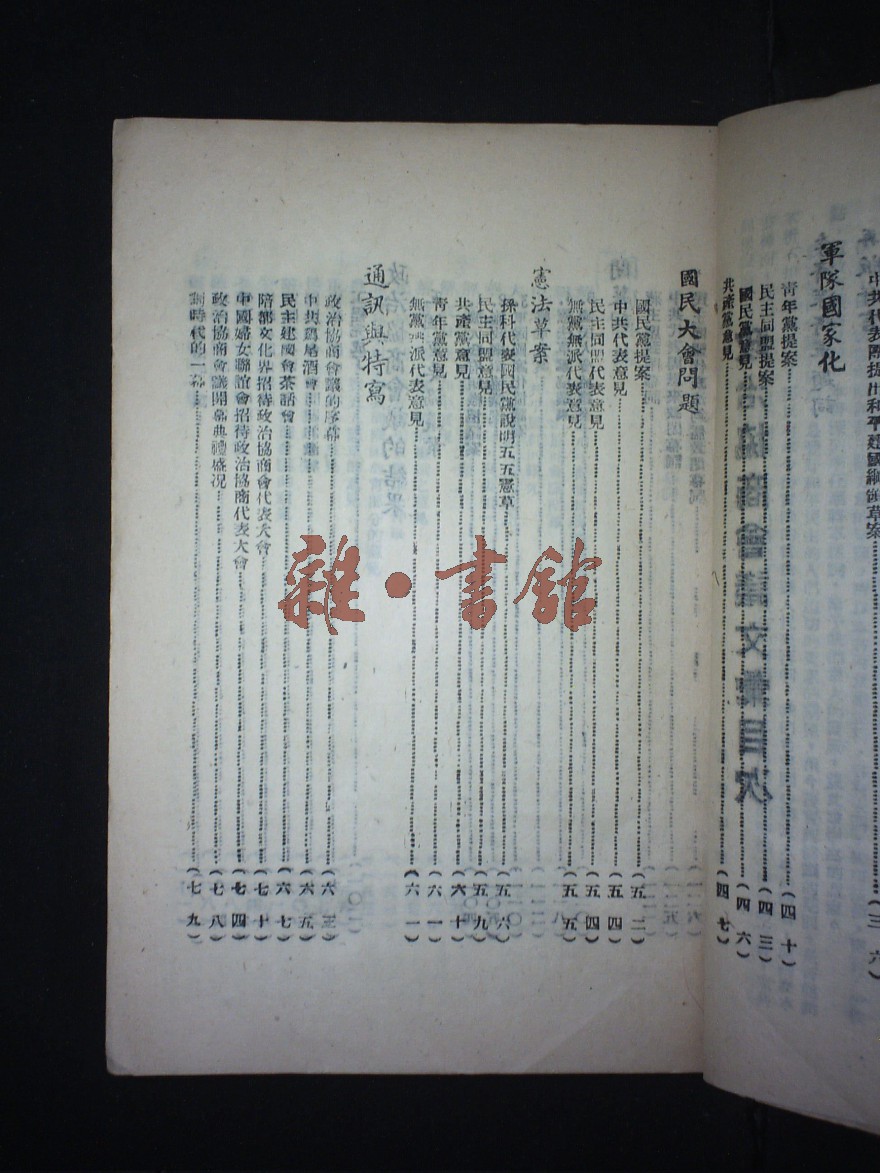 中共代表團提出和平建國綱領草案(三六)
軍隊國家化
青年黨提案(四十)
民主同盟提案(四三)
國民黨意見(四六)
共產黨意見(四七)
國民大會問題
國民黨提案(五二)
中共代表意見(五四)
民主同盟代表意見(五四)
無黨無派代表意見(五五)
憲法草案
孫科代表國民黨說明五五憲草(五六)
民主同盟意見(五九)
共產黨意見(六十)
青年黨意見(六一)
無黨無派代表意見(六一)
通訊與特寫
政治協商會議的序幕(六三)
中共鷄尾酒會(六五)
民主建國會茶話會(六七)
陪都文化界招待政治協商會代表大會(七十)
中國婦女聯誼會招待政治協商代表大會(七四)
政治協商會議開幕典禮盛况(七八)
劃時代的一幕(七九)
雜·書館